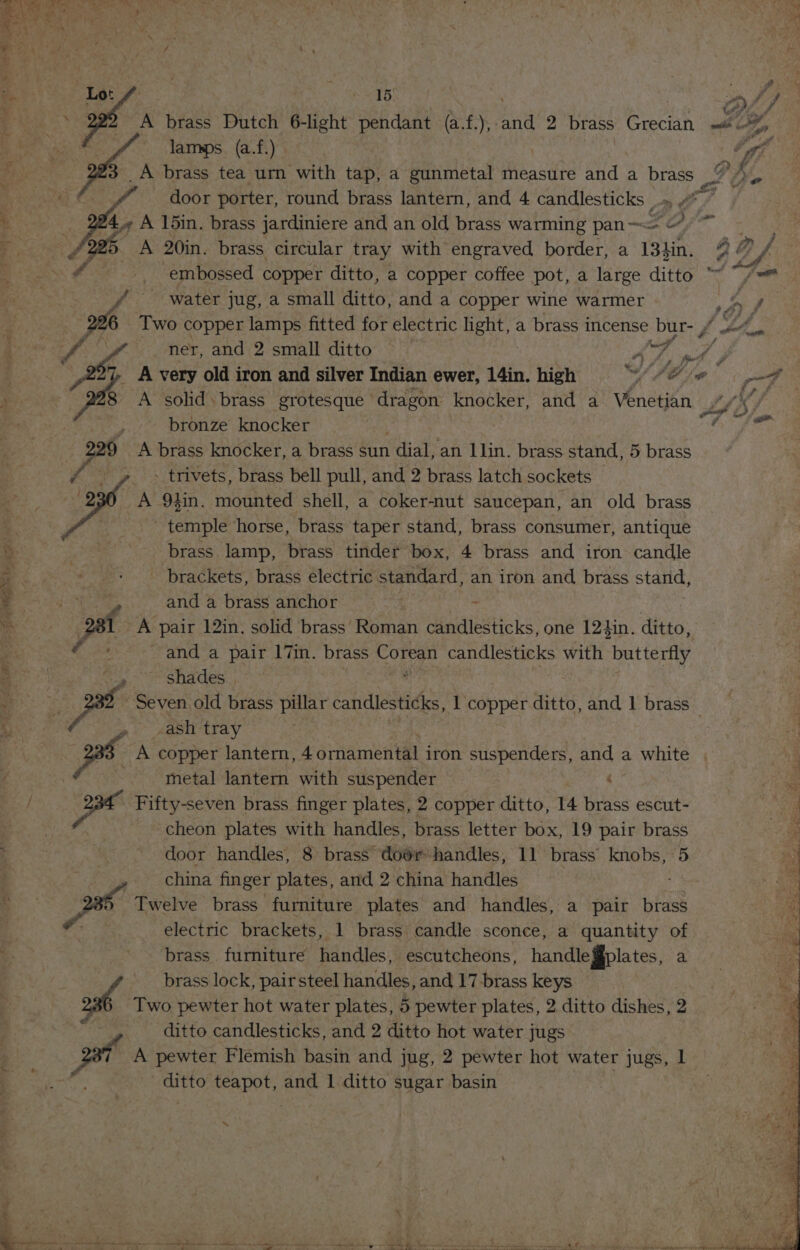 Lot 15
222 A brass Dutch 6-light pendant (a.f.), and 2 brass Grecian
lamps (a.f.)
223 A brass tea urn with tap, a gunmetal measure and a brass
door porter, round brass lantern, and 4 candlesticks
224 A 15in. brass jardiniere and an old brass warming pan
225 A 20in. brass circular tray with engraved border, a 13½in.
embossed copper ditto, a copper coffee pot, a large ditto
water jug, a small ditto, and a copper wine warmer
226 Two copper lamps fitted for electric light, a brass incense bur-
ner, and 2 small ditto
227 A very old iron and silver Indian ewer, 14in. high
228 A solid brass grotesque dragon knocker, and a Venetian
bronze knocker
229 A brass knocker, a brass sun dial, an 11in. brass stand, 5 brass
trivets, brass bell pull, and 2 brass latch sockets
230 A 9½in. mounted shell, a coker-nut saucepan, an old brass
temple horse, brass taper stand, brass consumer, antique
brass lamp, brass tinder box, 4 brass and iron candle
brackets, brass electric standard, an iron and brass stand,
and a brass anchor
231 A pair 12in. solid brass Roman candlesticks, one 12½in. ditto,
and a pair 17in. brass Corean candlesticks with butterfly
shades
232 Seven old brass pillar candlesticks, 1 copper ditto, and 1 brass
ash tray
233 A copper lantern, 4 ornamental iron suspenders, and a white
metal lantern with suspender
234 Fifty-seven brass finger plates, 2 copper ditto, 14 brass escut-
cheon plates with handles, brass letter box, 19 pair brass
door handles, 8 brass door handles, 11 brass knobs, 5
china finger plates, and 2 china handles
235 Twelve brass furniture plates and handles, a pair brass
electric brackets, 1 brass candle sconce, a quantity of
brass furniture handles, escutcheons, handle plates, a
brass lock, pair steel handles, and 17 brass keys
236 Two pewter hot water plates, 5 pewter plates, 2 ditto dishes, 2
ditto candlesticks, and 2 ditto hot water jugs
237 A pewter Flemish basin and jug, 2 pewter hot water jugs, 1
ditto teapot, and 1 ditto sugar basin